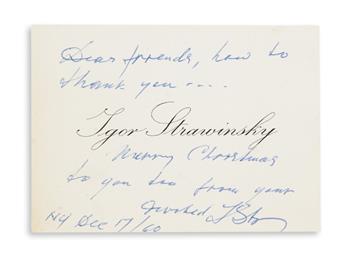 Dear friends, how to
thank you ....
Igor Strawinsky
Merry Christmas
to you too from your
devoted I Str
NY Dec 17/60